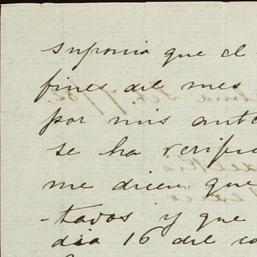 suponia que el
fines del mes
por mis ante
se ha verific
me dicen que
-tavos y que
dia 16 del co